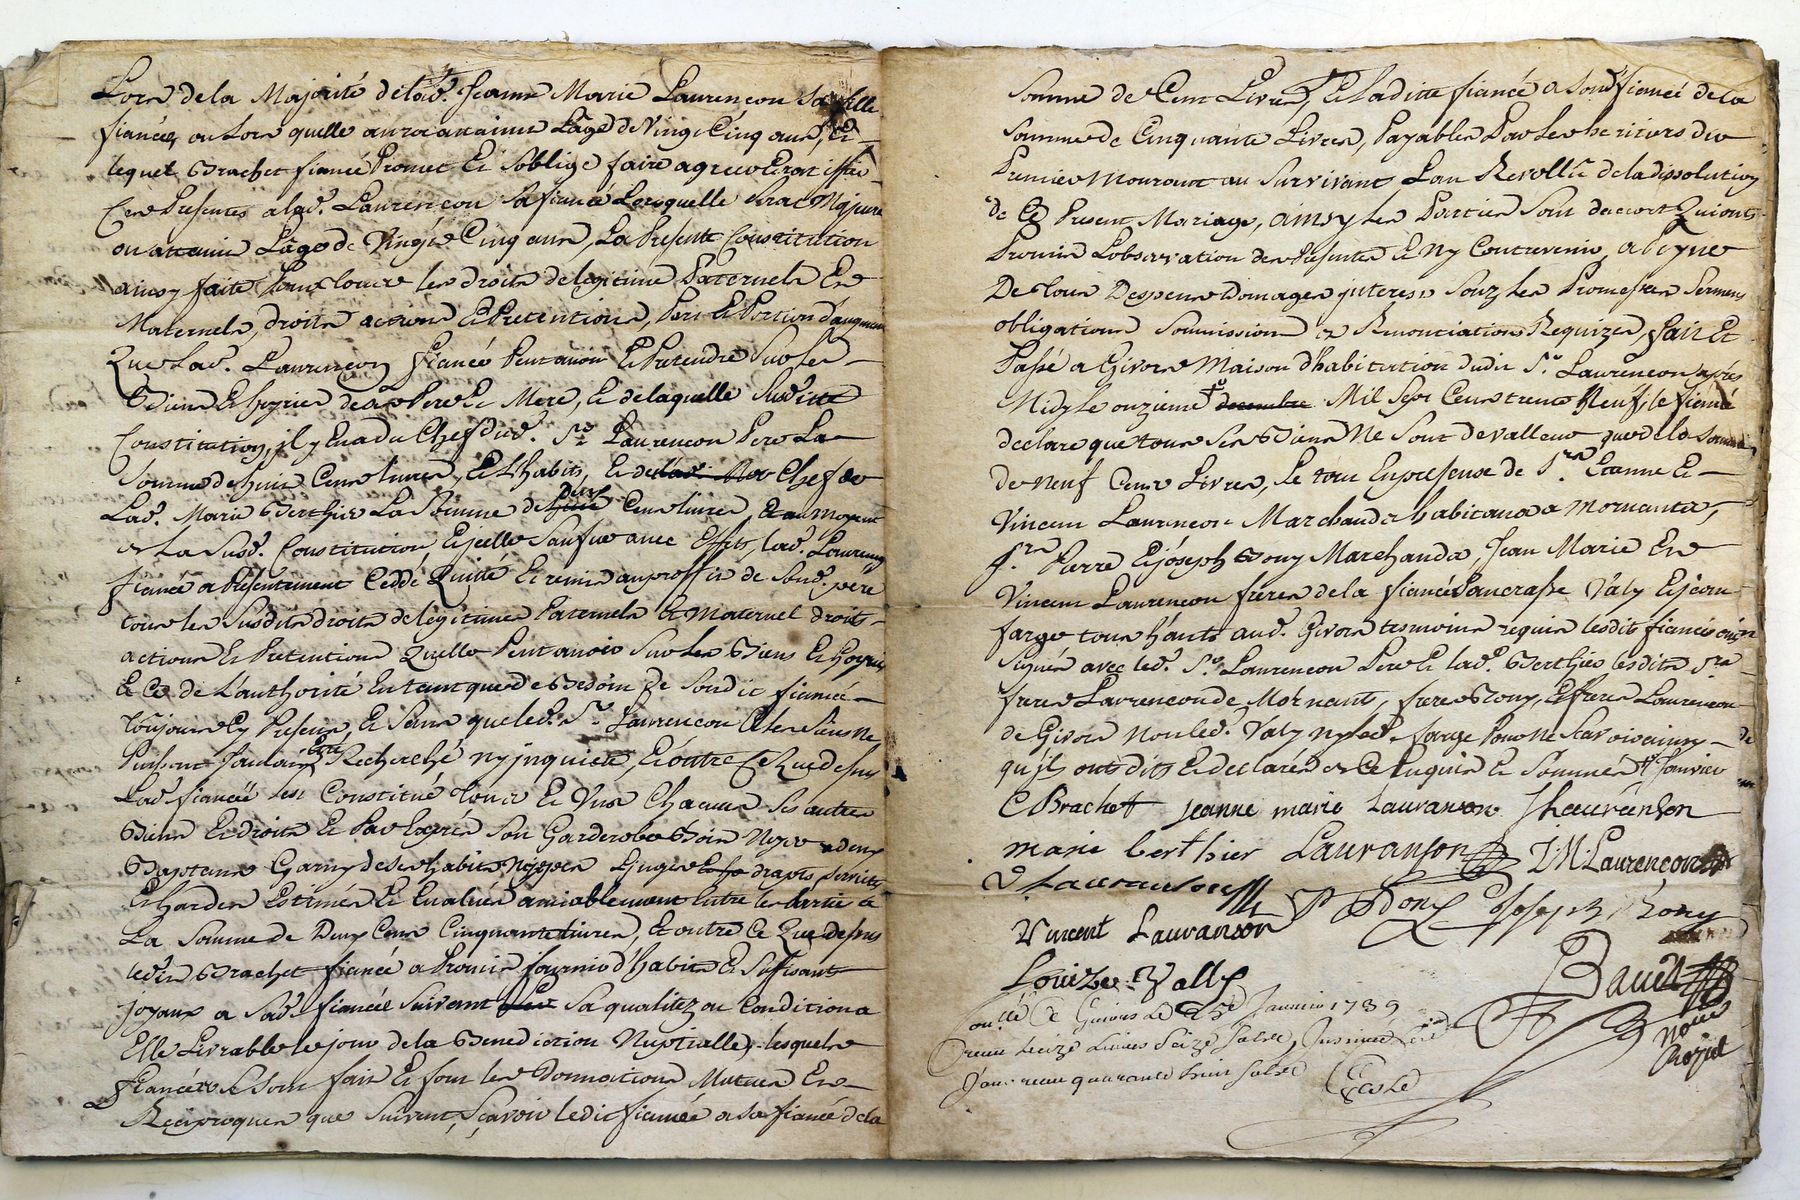 Lors de la Majorité de lad. Jeanne Marie Laurençon sa fille
fiancée, ou lors quelle aura attaint Lâge de Vingt Cinq ans, Et
lequel Brachet fiancé Promet Et soblige faire agreer Et ratiffier
Ces Presentes a lad. Laurençon sa fiancée Lorsquelle serat Majeure
ou attaint Lâge de Vingt Cinq ans, La Presente Constitution
ainsy faite Pour tous les droits de legitime Paternels Et
Maternels, droits actions Et Pretentions, Part Et Portion daugment
Que lad. Laurençon fiancée Peut avoir Et Pretendre sur les
Biens Et hoyries de ses Pere Et Mere, Et de laquelle susditte
Constitution, il y En a du Chef dud. Sr. Laurençon Pere La
somme de huit Cents livres, Et habits, Et de Chef de
Lad. Marie Berthier La somme de deux Cents livres, Et au moyent
de La susd. Constitution, Et jcelle sauf ue avec Effets, lad. Laurençon
fiancée a Presentement Ceddé Quitté Et remis au proffit de sond. père
tous les susdits droits de legitimes Paternels Et Maternel droits
actions Et Pretentions Quelle Peut avoir sur les Biens Et hoyries
Et Ce de L'authorité En tant que de Besoin de sondit fiancé
toujours Cy Present, Et sans que led. Sr. Laurençon Et les siens ne
Puissent Jamais être Recherché ny jnquieté, Et outre Ce Que dessus
Lad. fiancée sest Constitué tous Et Uns Chacuns ses autres
Biens Et droits Et Par Exprès son Garderobe Bois Noyer a deux
Battans Garny de ses habits, Nippes Linges draps serviettes
Et hardes Estimés Et Evalués amiablement Entre les Parties a
La somme de Deux Cents Cinquante livres, Et outre Ce Que dessus
ledit Brachet fiancé a Promis fournir d'habits Et suffisants
joyaux a sad. fiancée suivant sa qualitez ou Condition a
Elle Livrable le jour de la Benediction Nuptialle, lesquels
fiancés se sont fait Et font les Donnations Mutues Et
Reciproques que suivent, sçavoir ledit fiancé a sa fiancée de la
Somme de Cent Livres, Et laditte fiancée a sond. fiancé de la
somme de Cinquante Livres, Payables Par les heritiers du
Premier Mourant au survivant Lan Revollu de la dissolution
de Ce Present Mariage, ainsy les Parties sont daccort Quionts
Promis Lobservation des Presentes Et Ny Contrevenir, a Peyne
De tous Despens Domages jnterest souz les Promesses serments
obligations soumissions Et Renonciations Requizes, fait Et
Passé a Givors Maison d'habitation dudit Sr. Laurençon après
Midy le onzieme † decembre Mil Sept Cents trente Neuf, le fiancé
declare que tous ses Biens Ne sont de valleur que de la somme
de neuf Cents Livres, Le tout En presense de Srs. Etienne Et
Vincent Laurençon Marchands habitans a Mornants,
Srs. Pierre Et joseph Bony Marchands, Jean Marie Et
Vincent Laurençon freres de la fiancée Pancrasse Valy Et jean
farge tous h'ants aud. Givors tesmoins requis lesdits fiancés ont
signés avec led. Sr. Laurençon Pere Et lad. Berthier lesdits Srs
freres Laurençon de Mornants, freres Bony, Et freres Laurençon
de Givors Non led. Valy ny led. farge Pour Ne sçavoir ainsy de
qu'ils onts dits Et declarés de Ce Enquis Et sommés † Janvier
C Brachet jeanne marie Lauranson Lhaurenson
marie berthier Lauranson J. M. Laurençon
V. Lauranson
Vincent Lauranson P Bony Joseph Bony
Louize Vally
Bauet
Noire
Royal
Con.llé Ce Givors Le 23e Janvier 1739
Livres Seize Sols
quarante huit sols